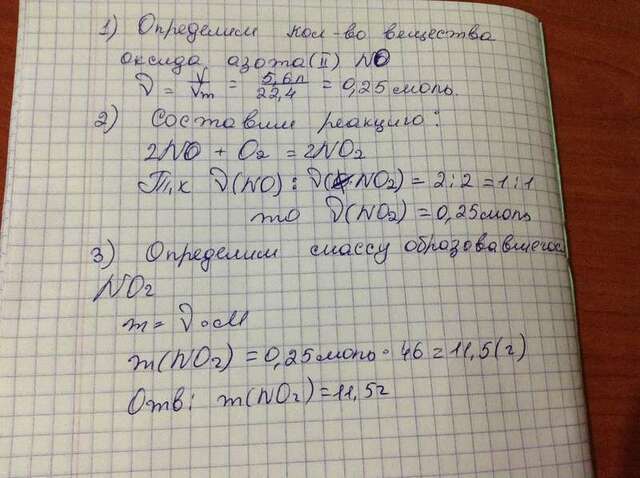 1) Определим кол-во вещества
оксида азота(II) NO
ν = V/Vm = 5,6л/22,4 = 0,25 моль
2) Составим реакцию:
2NO + O₂ = 2NO₂
Т.к ν(NO) : ν(NO₂) = 2:2 = 1:1
то ν(NO₂) = 0,25 моль
3) Определим массу образовавшегося
NO₂
m = ν·M
m(NO₂) = 0,25 моль · 46 = 11,5(г)
Отв: m(NO₂) = 11,5г